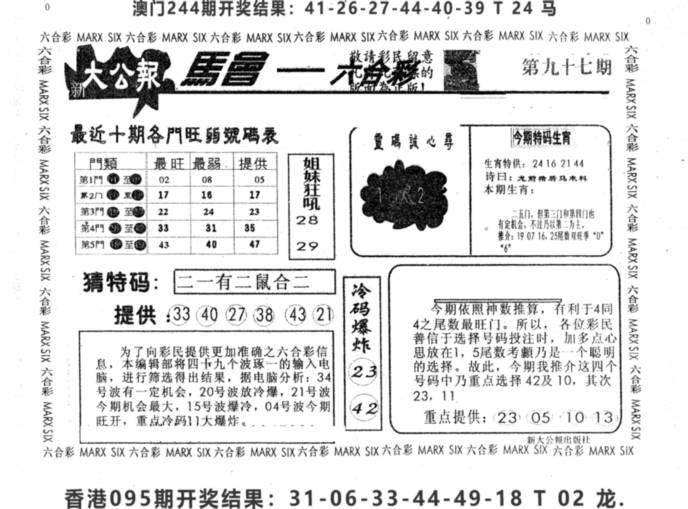 澳门244期开奖结果：41-26-27-44-40-39 T 24 马
0
0
六合彩 MARX SIX 六合彩 MARX SIX 六合彩 MARX SIX 六合彩 MARX SIX 六合彩 MARX SIX 六合彩 MARX SIX 六合彩
六合彩 MARX SIX 六合彩 MARX SIX 六合彩 MARX SIX 六合彩 MARX SIX
六合彩 MARX SIX 六合彩 MARX SIX 六合彩 MARX SIX 六合彩 MARX SIX
新
大公報
馬會一六合彩
敬请彩民留意
第九十七期
最近十期各門旺弱號碼表
門類 最旺 最弱 提供
第1門 至 02 08 05
第2门 至 17 16 17
第3門 至 22 24 23
第4門 至 33 31 35
第5門 至 43 40 47
姐妹狂吼
28
29
靈碼誠心尋
今期特码生肖
生肖特供：24 16 21 44
诗曰：
本期生肖：
二五门，但第三门和第四门也
有定机会，不过乃以第二为主。
推介：19 07 16，25尾数双旺季“0”
“6”
猜特码：
二一有二鼠合二
提供：33 40 27 38 43 21
为了向彩民提供更加准确之六合彩信
息，本编辑部将四十九个波琢一的输入电
脑，进行筛选得出结果，据电脑分析：34
号波有一定机会，20号波放冷爆，21号波
今期机会最大，15号波爆冷，04号波今期
旺开，重点冷码11大爆炸。
冷码爆炸
23
42
今期依照神数推算，有利于4同
4之尾数最旺门。所以，各位彩民
善信于选择号码投注时，加多点心
思放在1，5尾数考顱乃是一个聪明
的选择。故此，今期我推介这四个
号码中乃重点选择42及10，其次
23，11
重点提供：23 05 10 13
新大公報出版社
六合彩 MARX SIX 六合彩 MARX SIX 六合彩 MARX SIX 六合彩 MARX SIX 六合彩 MARX SIX 六合彩 MARX SIX 六合彩
香港095期开奖结果：31-06-33-44-49-18 T 02 龙.